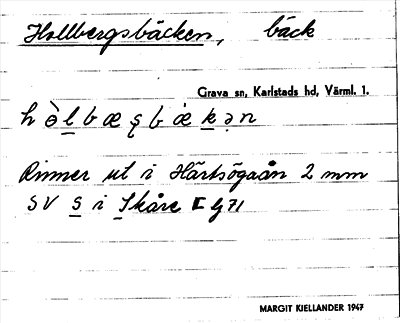 Hollbergsbäcken, bäck
Grava sn, Karlstads hd, Värml. 1.
Rinner ut i Härtsögaån 2 mm
SV S i Skåre
MARGIT KJELLANDER 1947